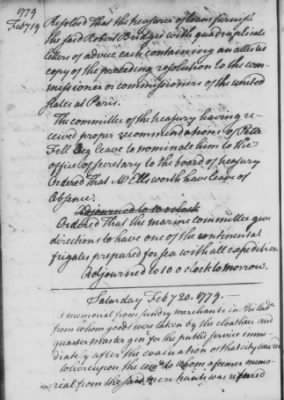 1779
Feb 19
Resolved that the treasurer of loans furnish
the said Robert Bridges with quadruplicate
letters of advice each containing an attested
copy of the preceding resolution to the com-
missioner or commissioners of the united
states at Paris.
The committee of the treasury having re
ceived proper recommendations of Peter
Fell beg leave to nominate him to the
office of secretary to the board of treasury
Ordered that Mr Ellsworth have leave of
Absence.
Adjourned to 10 o clock
Ordered that the marine committee give
directions to have one of the continental
frigates prepared for sea with all expedition
Adjourned to 10 o clock to morrow.
Saturday Feb 20. 1779.
A memorial from sundry merchants in Philada
from whom goods were taken by the cloathier and
quarter master gen for the public service imme
diately after the evacuation of that city was read
Whereupon the comee to whom a former memo-
rial from the said merchants was referred